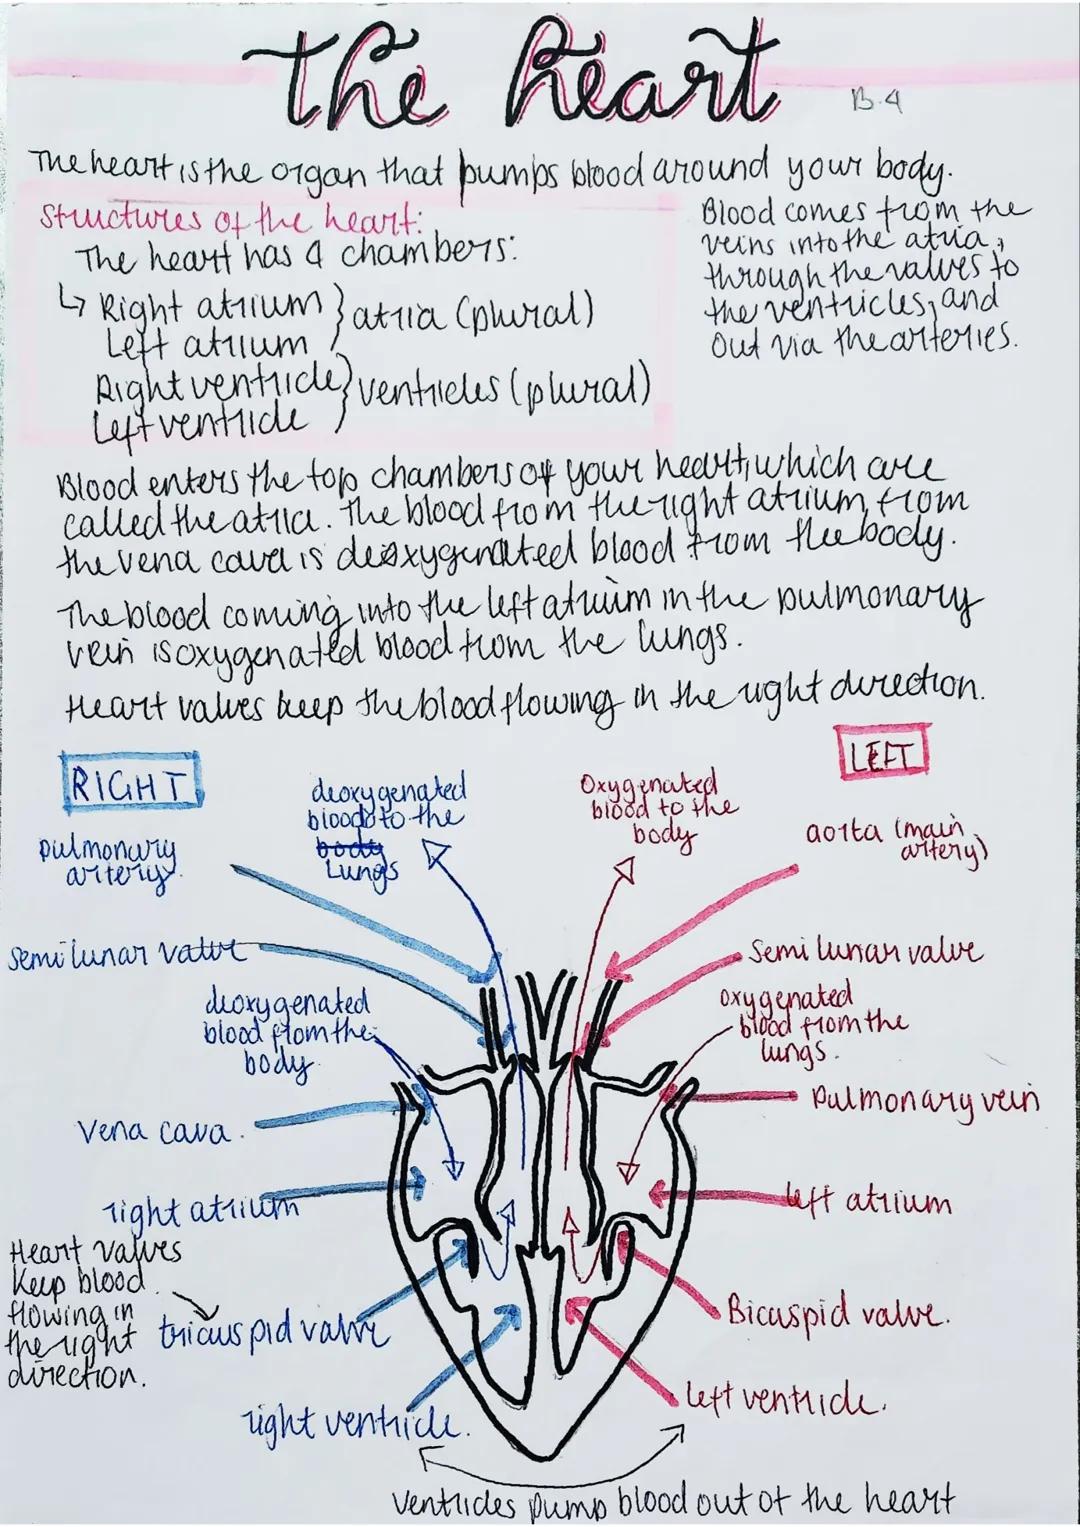 The heart
B.4
The heart is the organ that pumps blood around your body.
Structures of the heart:
The heart has 4 chambers:
↳ Right atrium } atria (plural)
Left atrium
Right ventricle } ventricles (plural)
Left ventricle
Blood comes from the
veins into the atria,
through the valves to
the ventricles, and
out via the arteries.
Blood enters the top chambers of your heart, which are
called the atria. The blood from the right atrium, from
the vena cava is deoxygenated blood from the body.
The blood coming into the left atrium in the pulmonary
vein is oxygenated blood from the lungs.
Heart valves keep the blood flowing in the right direction.
RIGHT
LEFT
deoxygenated
blood to the
body
Lungs
Oxygenated
blood to the
body
pulmonary
artery.
aorta (main
artery)
semi lunar valve
Semi lunar valve
deoxygenated
blood from the
body.
oxygenated
blood from the
lungs.
vena cava.
Pulmonary vein
right atrium
left atrium
Heart valves
keep blood
flowing in
the right
direction.
tricuspid valve
Bicuspid valve.
right ventricle.
left ventricle.
Ventricles pump blood out of the heart